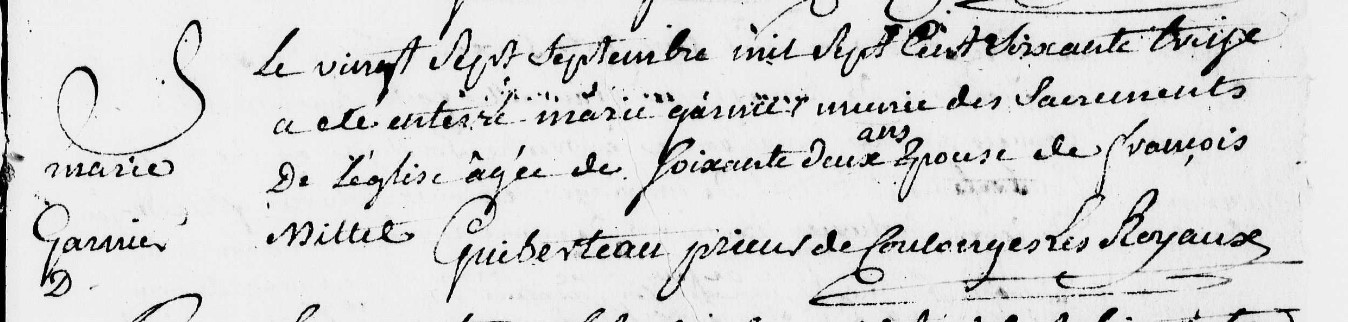 S
Le vingt Sept Septembre mil Sept Cent Soixante treize
a ete enterré marie garnier munie des Sacrements
marie
De l'église âgée de Soixante deux ans Epouse de François
Garnier
Mittel Guiberteau prieur de Coulonges Les Royaux
D.